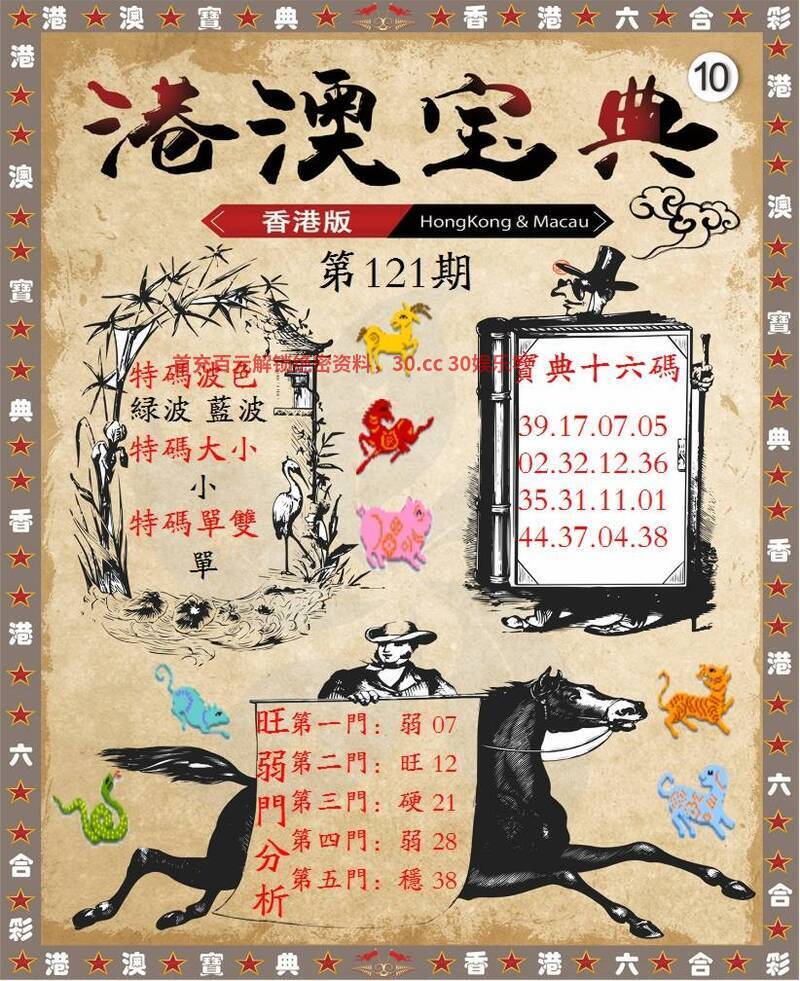 港★澳★寶★典★香★港★六★合★彩
10
港澳宝典
香港版 HongKong & Macau
第121期
首充百元解锁绝密资料，30.cc 30娱乐
特碼波色
緑波 藍波
特碼大小
小
特碼單雙
單
寶典十六碼
39.17.07.05
02.32.12.36
35.31.11.01
44.37.04.38
旺弱門分析
第一門：弱 07
第二門：旺 12
第三門：硬 21
第四門：弱 28
第五門：穩 38
港★澳★寶★典★香★港★六★合★彩
港★澳★寶★典★香★港★六★合★彩
港★澳★寶★典★香★港★六★合★彩